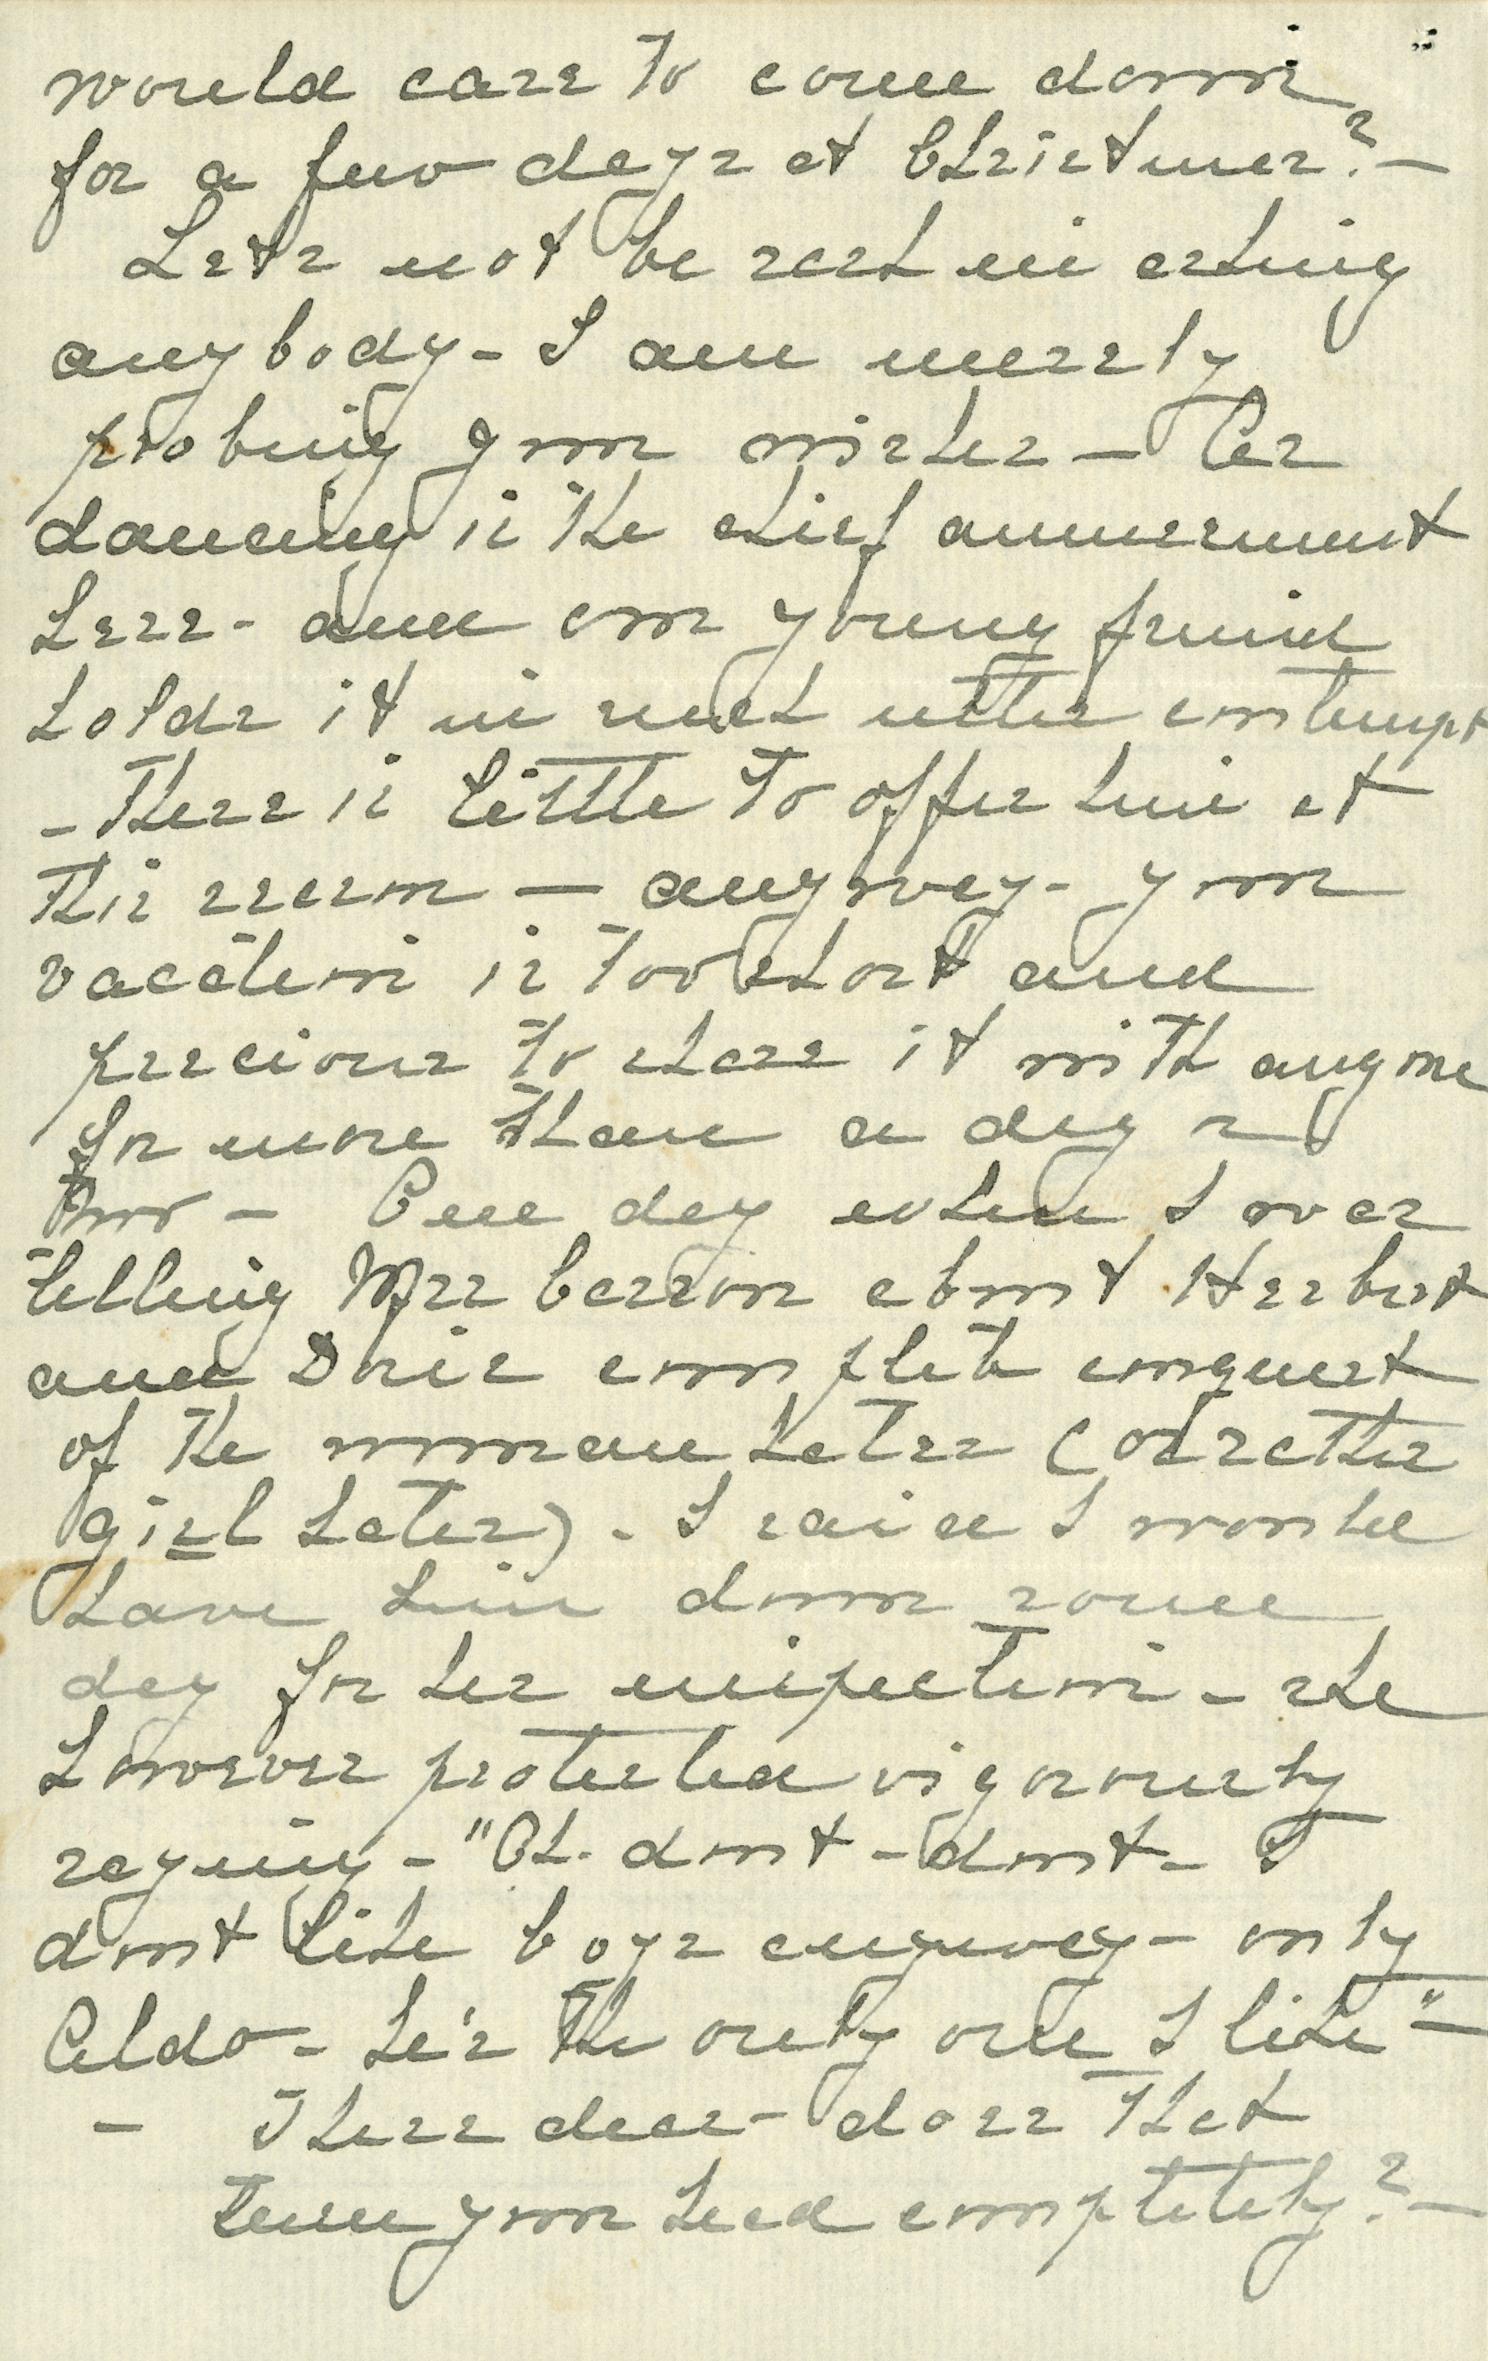 would care to come down
for a few days at Christmas? —
Lets not be rash in asking
anybody - I am merely
probing your wishes — As
dancing is the chief amusement
here - and our young friend
holds it in such utter contempt
- There is little to offer him at
this season — anyway - your
vacation is too short and
precious to share it with anyone
for more than a day or
two — One day when I was
telling Mrs Carson about Herbert
and Doris complete conquest
of the woman hater (or rather
girl hater) - I said I would
have him down some
day for her inspection - she
however protested vigorously
saying - "Oh - dont - dont - I
dont like boys anyway - only
Aldo - he's the only one I like" —
- There dear - does that
turn your head completely? —